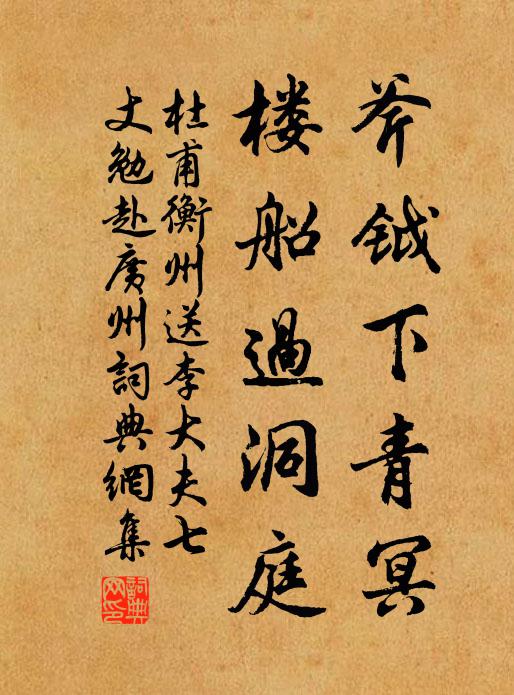 斧钺下青冥
楼船過洞庭
杜甫衡州送李大夫七
丈勉赴廣州詞典網集
詞典
网印